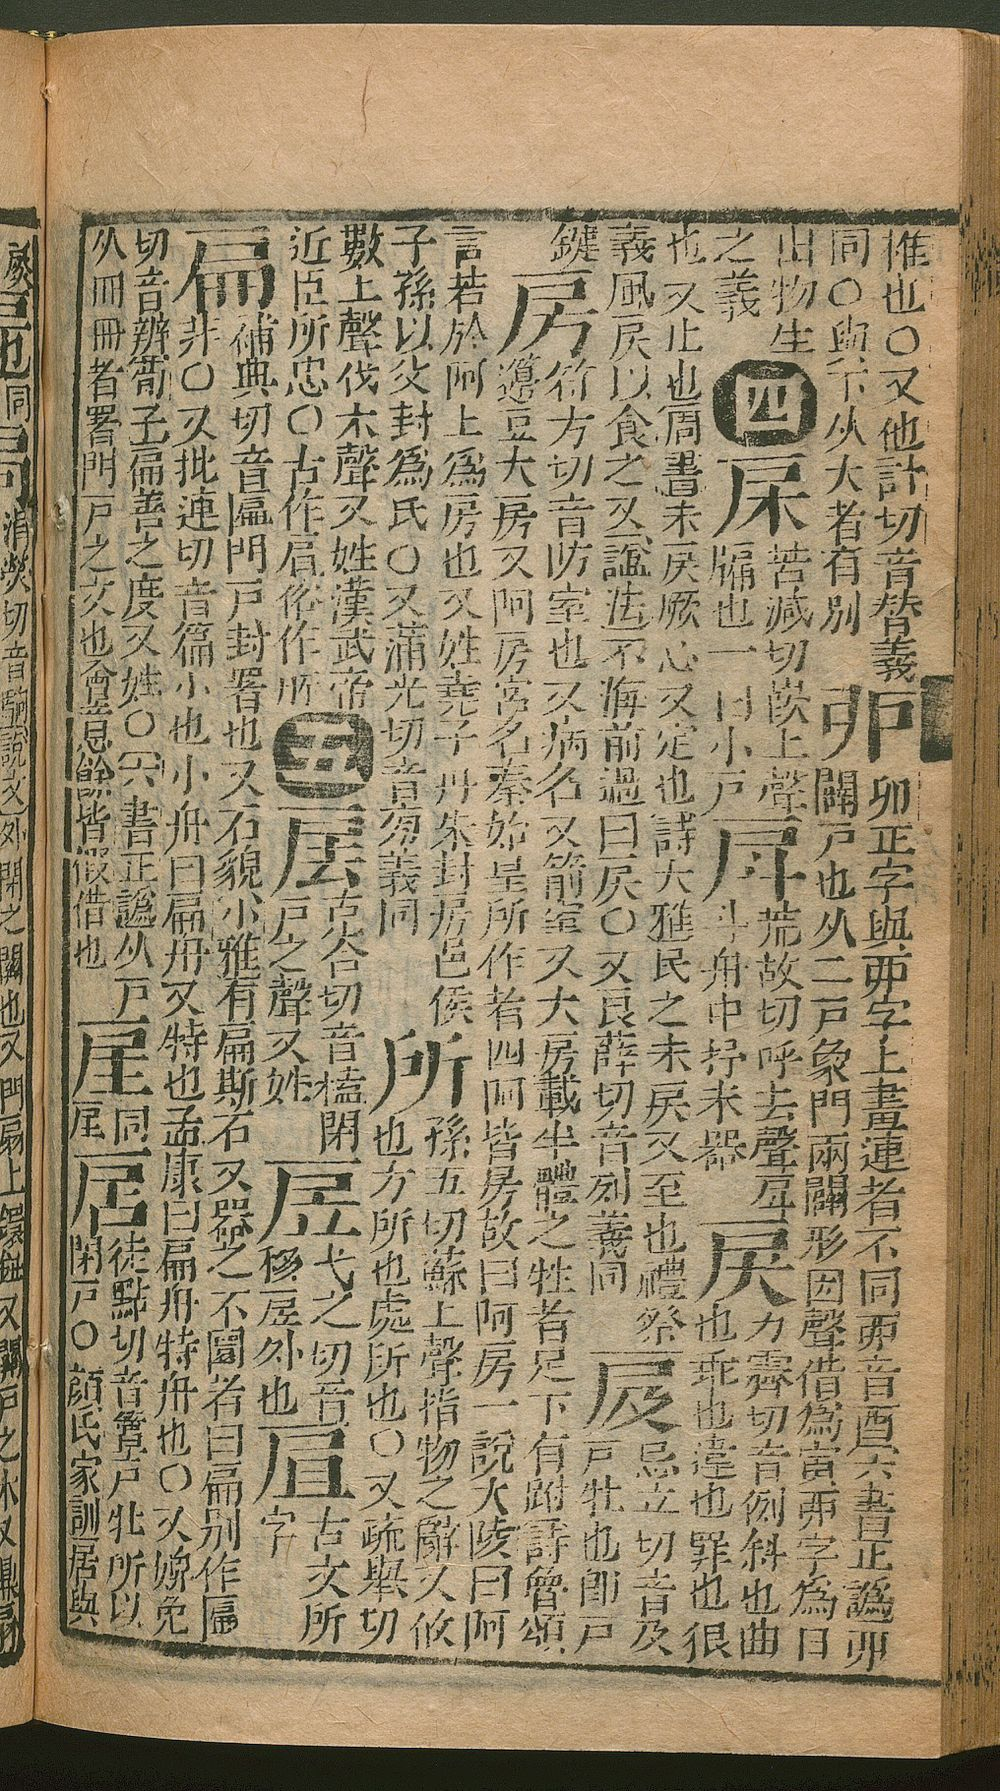 惟也〇又他計切音替義
同〇與下从大者有別
戼
卯正字與丣字上畫連者不同丣音酉六書正譌丣
闢戶也从二戶象門兩闢形因聲借為寅丣字為日
出物生
之義
四
苦減切嵌上聲
牖也一曰小戶
戽
荒故切呼去聲戽
斗舟中抒水器
戾
力霽切音例斜也曲
也乖也違也罪也很
也又止也周書未戾厥心又定也詩大雅民之未戾又至也禮祭
義風戾以食之又謚法不悔前過曰戾〇又良薛切音列義同
忌立切音及
戶牡也即戶
鍵
房
符方切音防室也又病名又箭室又大房載半體之牲者足下有跗詩魯頌
籩豆大房又阿房宮名秦始皇所作者四阿皆房故曰阿房一說大陵曰阿
言若於阿上為房也又姓堯子丹朱封房邑侯
子孫以父封為氏〇又蒲光切音旁義同
所
孫五切蘇上聲指物之辭又伙
也方所也處所也〇又疏舉切
數上聲伐木聲又姓漢武帝
近臣所忠〇古作俗作
五
克合切音榼閉
戶之聲又姓
弋之切音
移扊外也
古文所
字
扁
補典切音匾門戶封署也又石貌小雅有扁斯石又器之不圓者曰扁別作匾
非〇又批連切音篇小也小舟曰扁舟又特也孟康曰扁舟特舟也〇又婢免
切音辮莊子扁善之度又姓〇六書正譌从戶
从冊冊者署門戶之文也會意餘皆假借也
同
扂
徒點切音簟戶牡所以
閉戶〇顏氏家訓扂與